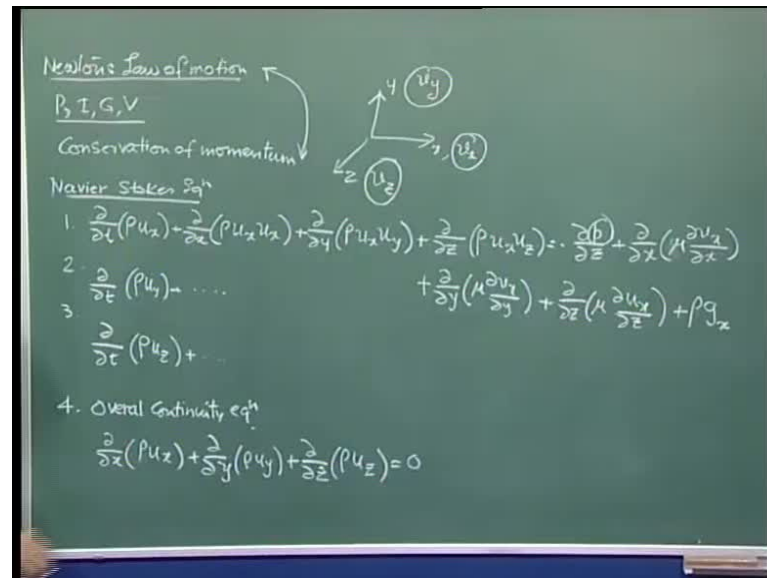 Newton's Law of motion
P, I, G, V
Conservation of momentum
y u_y
x, u_x
z u_z
Navier Stokes Eqⁿ
1. ∂/∂t (ρu_x) + ∂/∂x (ρu_x u_x) + ∂/∂y (ρu_x u_y) + ∂/∂z (ρu_x u_z) = - ∂p/∂z + ∂/∂x (μ ∂u_x/∂x)
+ ∂/∂y (μ ∂u_x/∂y) + ∂/∂z (μ ∂u_x/∂z) + ρg_x
2. ∂/∂t (ρu_y) - ....
3 ∂/∂t (ρu_z) + ...
4. Overal Continuity eqⁿ
∂/∂x (ρu_x) + ∂/∂y (ρu_y) + ∂/∂z (ρu_z) = 0